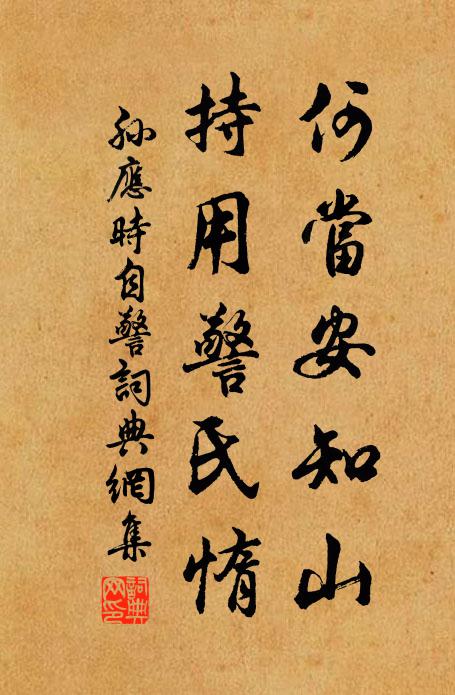 何當安知山
持用警民惰
孫應時自警詞典網集
詞典網印